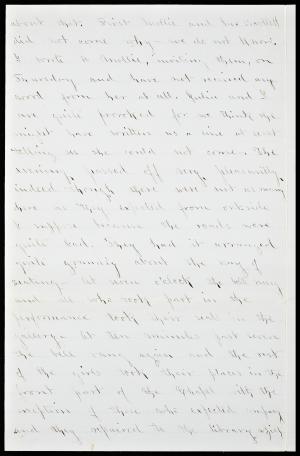 about that. First Mollie and her
did not come why - we do not know.
I wrote to Mollie, inviting them, on
Thursday and have not recived any
word from her at all. Julia and I
are quite provoked for we think she
might have written us a line at least
telling us she could not come. The
passed off very pleasantly
indeed though there were not as many
here as they expected from outside
I suppose because the roads were
quite bad. They had it arranged
quite about the way of
seating. At seven o'clock the bell rang
and all who took part in the
performance took their seats in the
gallery. At ten minutes past seven
the bell rang again and the rest
of the girls took their places in the
front part of the Chapel with the
exception of those who expected
and they repaired to the library